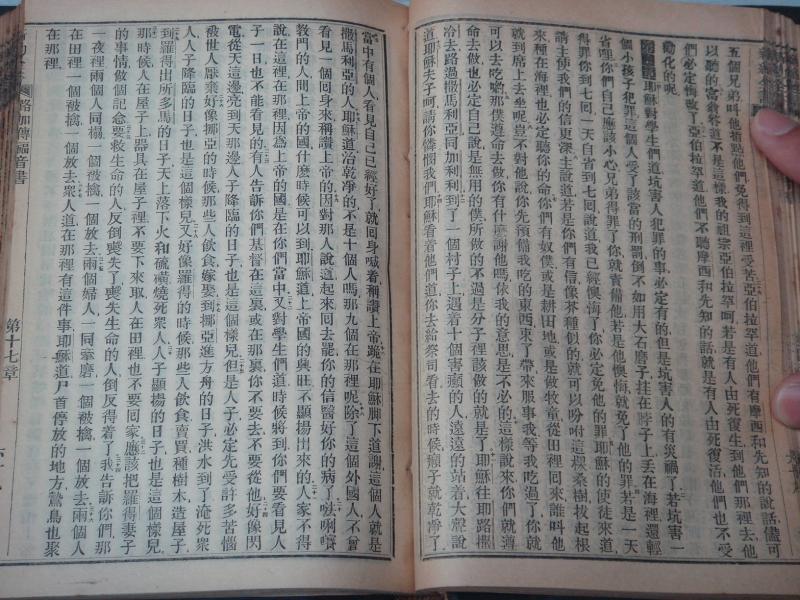 五個兄弟叫他指點他們免得到這裡受苦亞伯拉罕道他們有摩西和先知的說話儘可
以聽的富翁答道不是這樣我的祖宗亞伯拉罕呵若是有人由死復生到他們那裡去他
們必定悔改了亞伯拉罕道他們不聽摩西和先知的話就是有人由死復活他們也不受
勸化的呢
耶穌對學生們道坑害人犯罪的事必定有的但是坑害人的有災禍了若坑害一
個小孩子犯罪這個人受了該當的刑罰倒不如用大石磨子拴在脖子上丟在海裡還輕
省哩你們自己應該小心兄弟得罪了你就責備他若是他懊悔就免了他的罪若是一天
得罪你到七回一天自省到七回說道我已經懊悔了你必定免他的罪耶穌的使徒來道
請主使我們的信更深主說道若是你們有信像芥種似的就可以吩咐這棵桑樹拔起根
來種在海裡他必定聽你的命你們有奴僕或是耕田地或是做牧童從田裡回來誰叫他
就到席上去坐呢豈不對他說你先預備我吃的東西束了帶來服事我等我吃過了你就
可以去吃喲那僕遵命去做你有什麼謝他嗎依我的意思是不必的這樣說來你們就遵
命去做也必定自己說是無用的僕所做的不過是分子裡該做的就是了耶穌往耶路撒
冷去路過撒馬利亞同加利利到了一個村子上遇着十個害癩的人遠遠的站着大聲說
道耶穌夫子呵請你憐憫我們耶穌看着他們道你去給祭司看去的時候癩子就乾凈了
當中有個人看見自己已經好了就回身喊着稱讚上帝跪在耶穌脚下道謝這個人就是
撒馬利亞的人耶穌道治乾凈的不是十個人嗎那九個在那裡呢除了這個外國人不曾
看見一個回身來稱讚上帝的因對那人說道起來回去罷你的信醫好你的病了𠵽唎㘔
教門的人間上帝的國什麼時候可以到耶穌道上帝國的興旺不顯揚出來的人家不得
說在這裡在那裡因為上帝的國是在你們當中又對學生們道時候將到你們要看見人
子一日也不能看見的有人告訴你們基督在這裏或在那裏你不要去不要從他好像閃
電從天這邊亮到天那邊人子降臨的日子也是這個樣兒但是人子必定先受許多苦惱
被世人厭棄好像挪亞的時候那些人飲食嫁娶到挪亞進方舟的日子洪水到了淹死衆
人人子降臨的日子也是這個樣兒又好像羅得的時候那些人飲食賣買種樹木造屋子
到羅得出所多馬的日子天上落下火和硫磺燒死衆人人子顯揚的日子也是這個樣兒
那時候人在屋子上器具在屋子裡不要下來取人在田裡也不要回家應該把羅得妻子
的事情做個記念要救生命的人反倒喪失了喪失生命的人倒反得着了我告訴你們那
一夜裡兩個人同榻一個被擒一個放去兩個婦人一同牽磨一個被擒一個放去兩個人
在田裡一個被擒一個放去衆人道在那裡有這件事耶穌道尸首停放的地方鷙鳥也聚
在那裡
路加傳福音書
第十七章